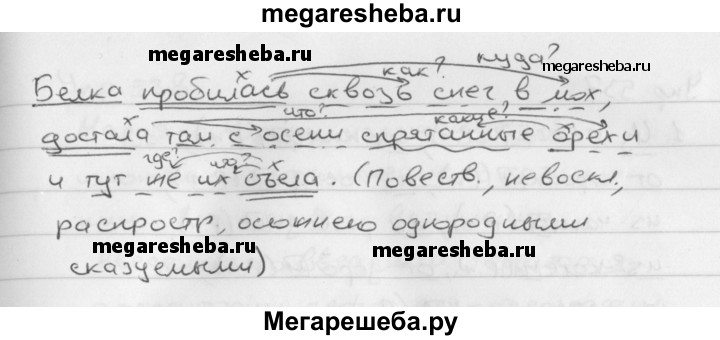 megaresheba.ru
megaresheba.ru
куда?
как?
megaresheba.ru
Белка пробилась сквозь снег в мох,
что?
какие?
достала там с осени спрятанные орехи
где?
что?
и тут же их съела. (Повеств., невоскл.,
распростр., осложнено однородными
megaresheba.ru
megaresheba.ru
сказуемыми)
Мегарешеба.ру